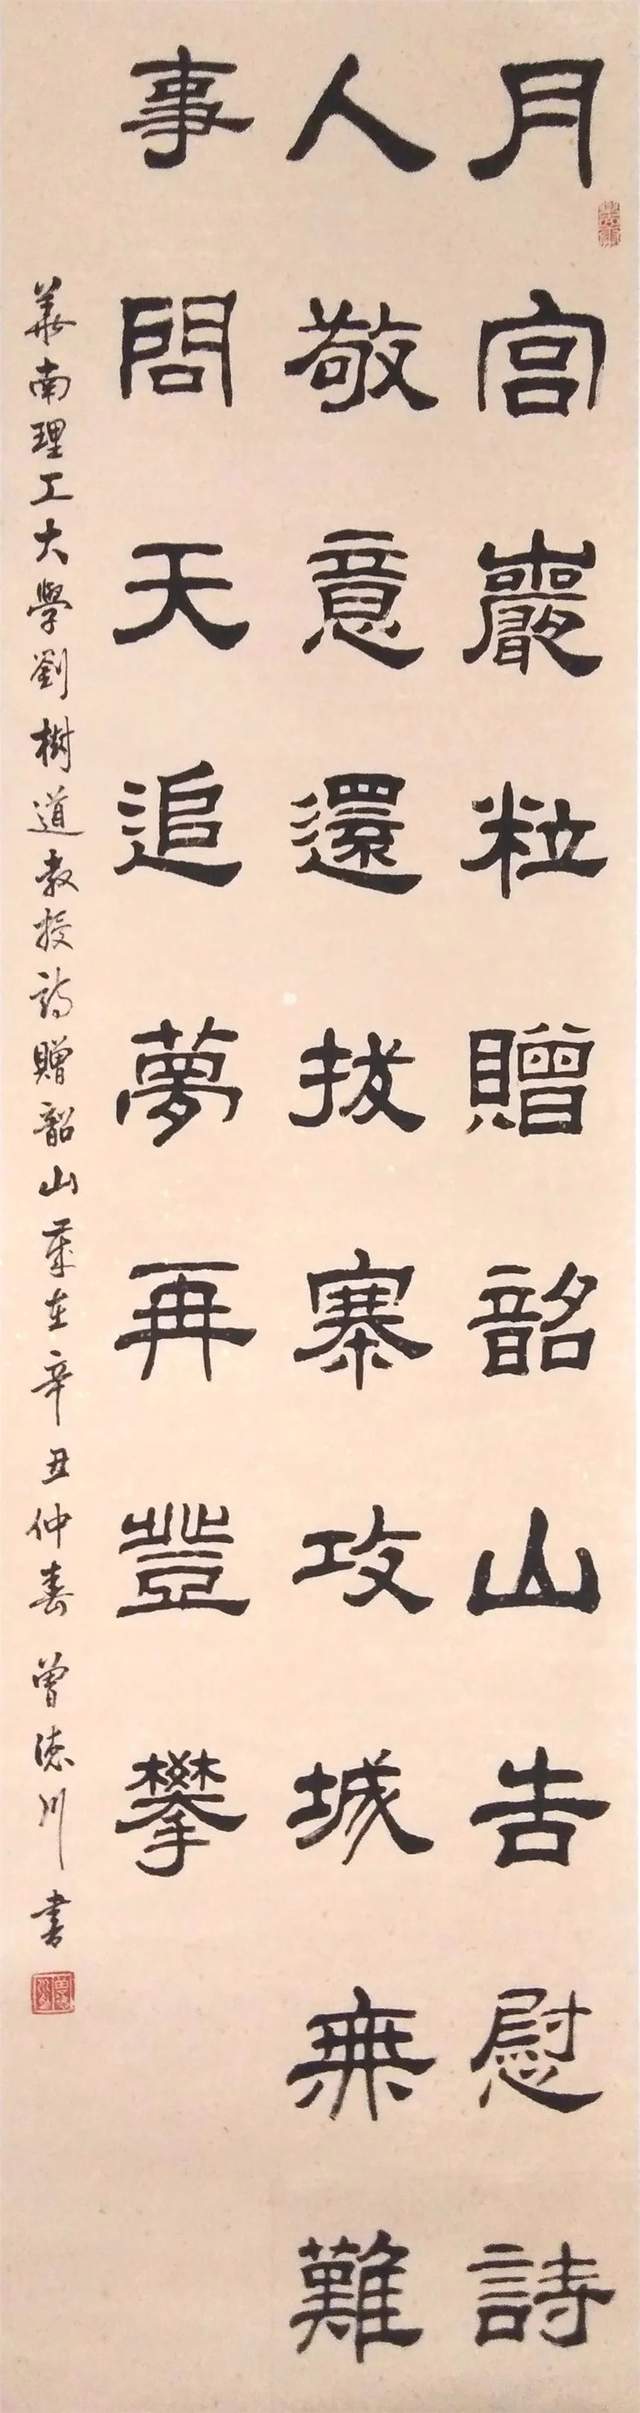 月宫巖粒贈韶山告慰詩
人敬意還拔寨攻城無難
事問天追夢再登攀
華南理工大學劉樹道教授詩贈韶山歲在辛丑仲春曾德川書